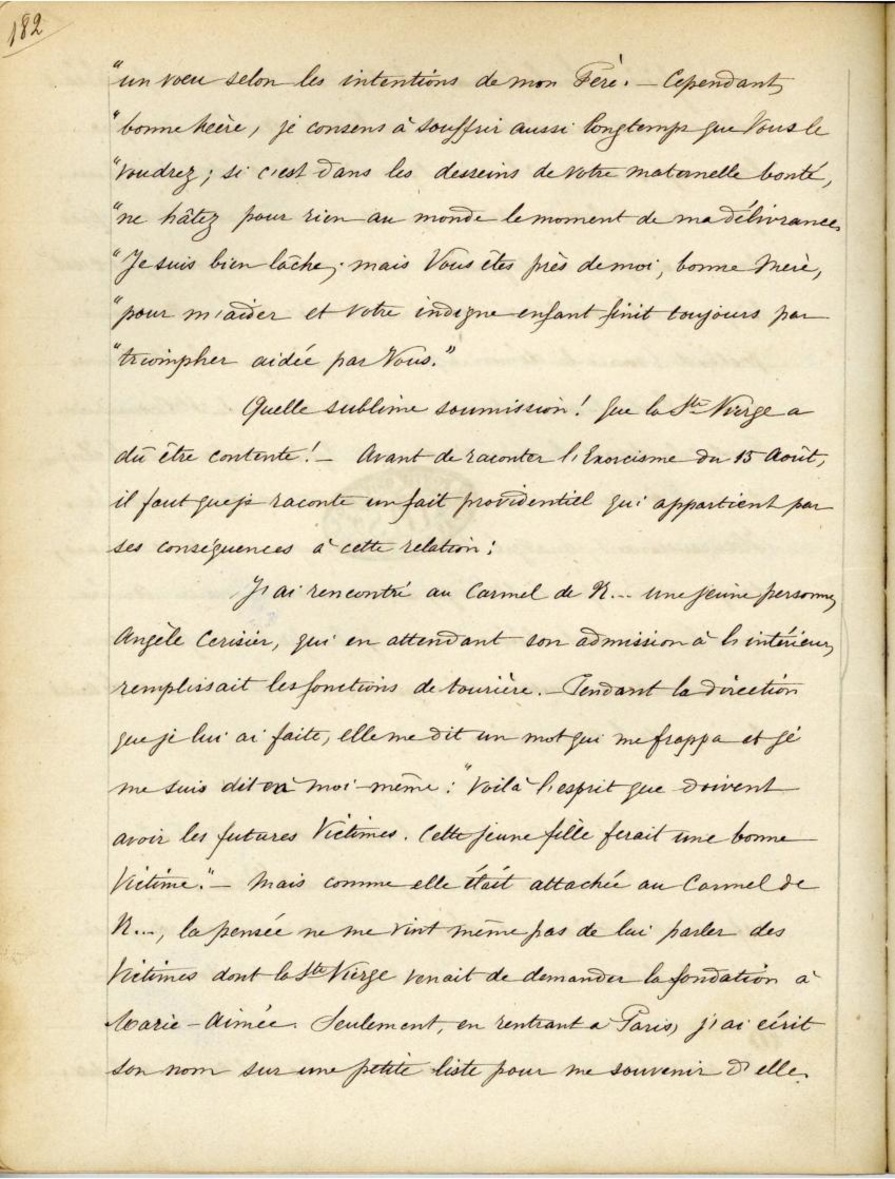 182
"un vœu selon les intentions de mon Père. — Cependant,
"bonne Mère, je consens à souffrir aussi longtemps que Vous le
"voudrez ; si c'est dans les desseins de votre maternelle bonté,
"ne hâtez pour rien au monde le moment de ma délivrance.
"Je suis bien lâche, mais Vous êtes près de moi, bonne Mère,
"pour m'aider et votre indigne enfant finit toujours par
"triompher aidée par Vous."
Quelle sublime soumission ! Que la Ste Vierge a
dû être contente ! — Avant de raconter l'Exorcisme du 15 Août,
il faut que je raconte un fait providentiel qui appartient par
ses conséquences à cette relation :
J'ai rencontré au Carmel de R... une jeune personne,
Angèle Cerisier, qui en attendant son admission à l'intérieur,
remplissait les fonctions de tourière. — Pendant la direction
que je lui ai faite, elle me dit un mot qui me frappa et je
me suis dit à moi-même : "Voilà l'esprit que doivent
avoir les futures Victimes. Cette jeune fille ferait une bonne
Victime." — Mais comme elle était attachée au Carmel de
R..., la pensée ne me vint même pas de lui parler des
Victimes dont la Ste Vierge venait de demander la fondation à
Marie-Aimée. Seulement, en rentrant à Paris, j'ai écrit
son nom sur une petite liste pour me souvenir d'elle.